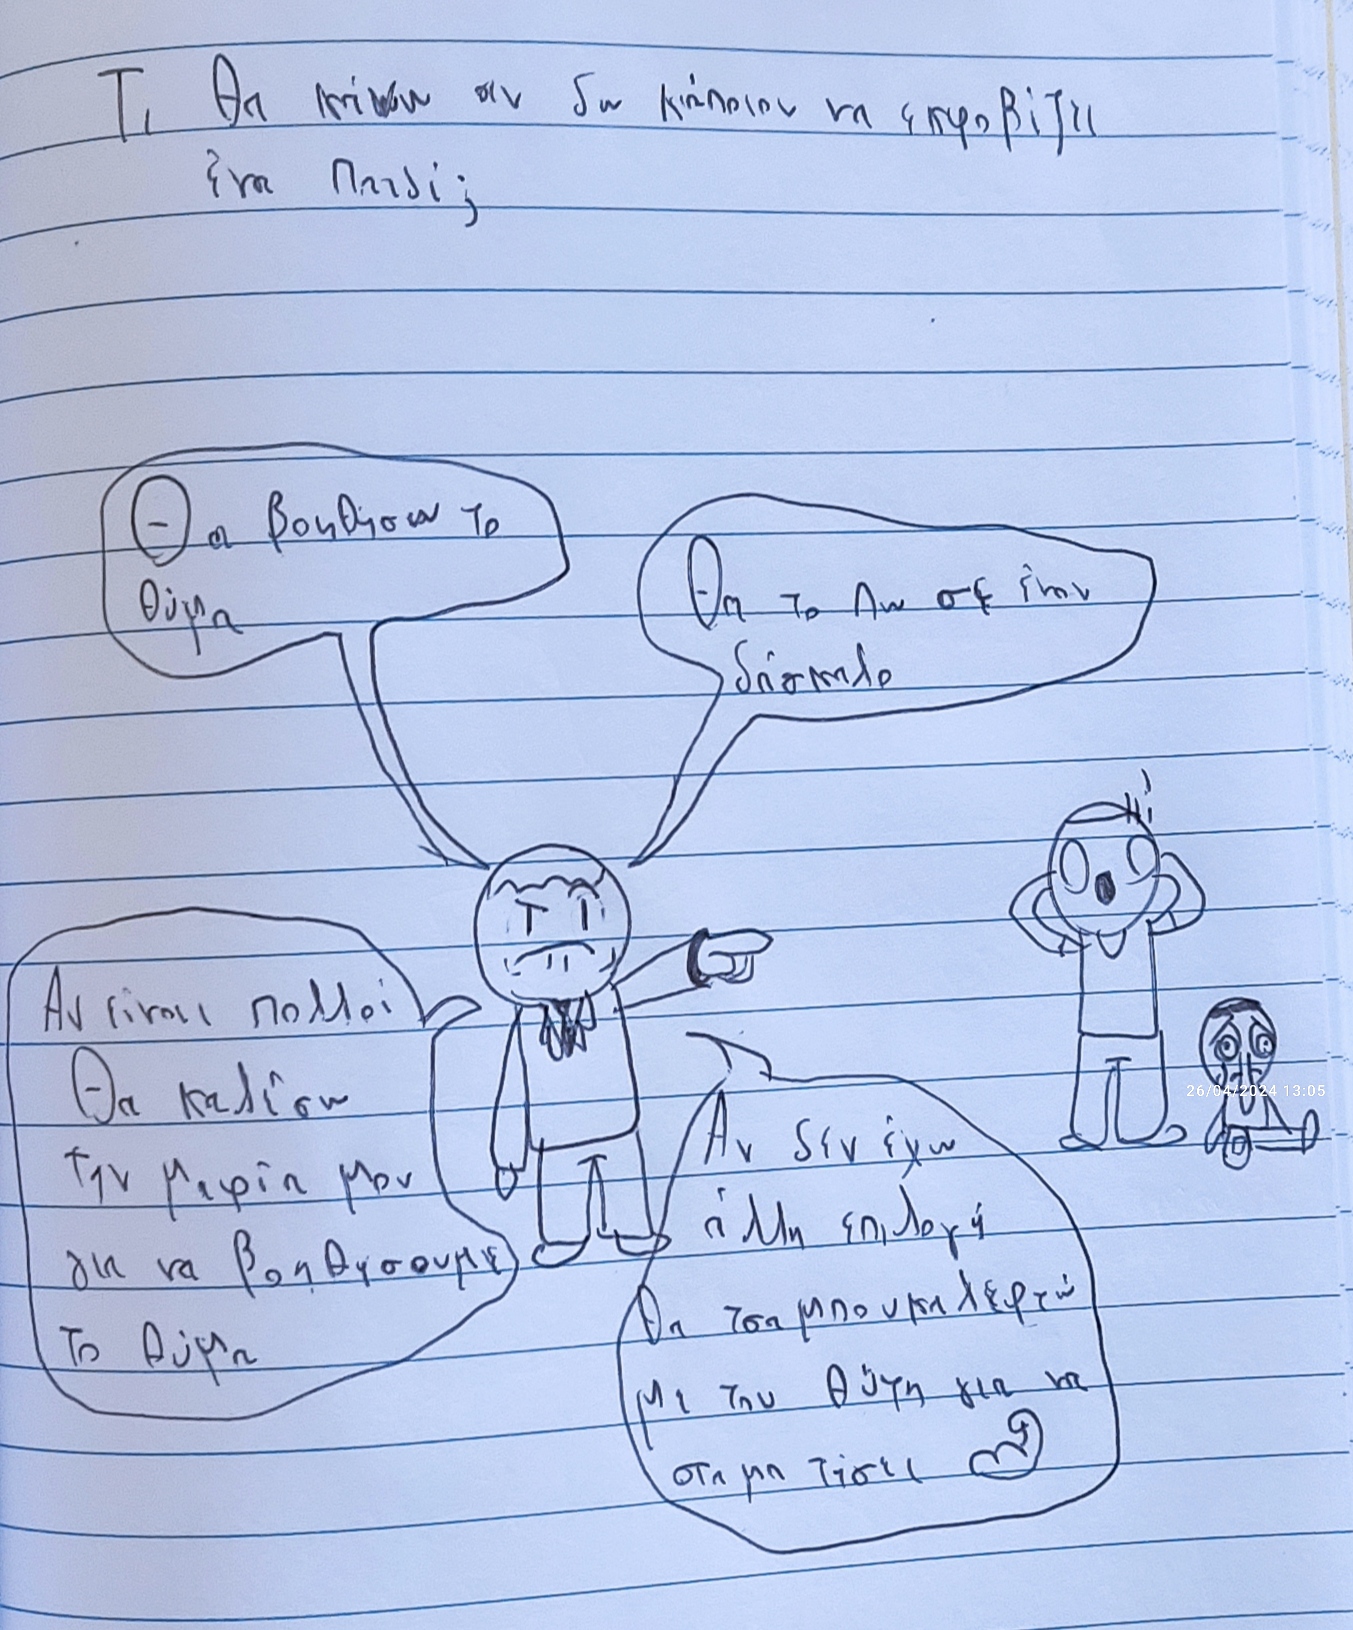 Τι θα κάνω αν δω κάποιον να εκφοβίζει
ένα παιδί;
Θα βοηθήσω το
θύμα
Θα το πω σε έναν
δάσκαλο
Αν είναι πολλοί
Θα καλέσω
την μαφία μου
για να βοηθήσουμε
το θύμα
Αν δεν έχω
άλλη επιλογή
θα τσαμπουκαλεφτώ
με τον θύτη για να
σταματίσει
26/04/2024 13:05